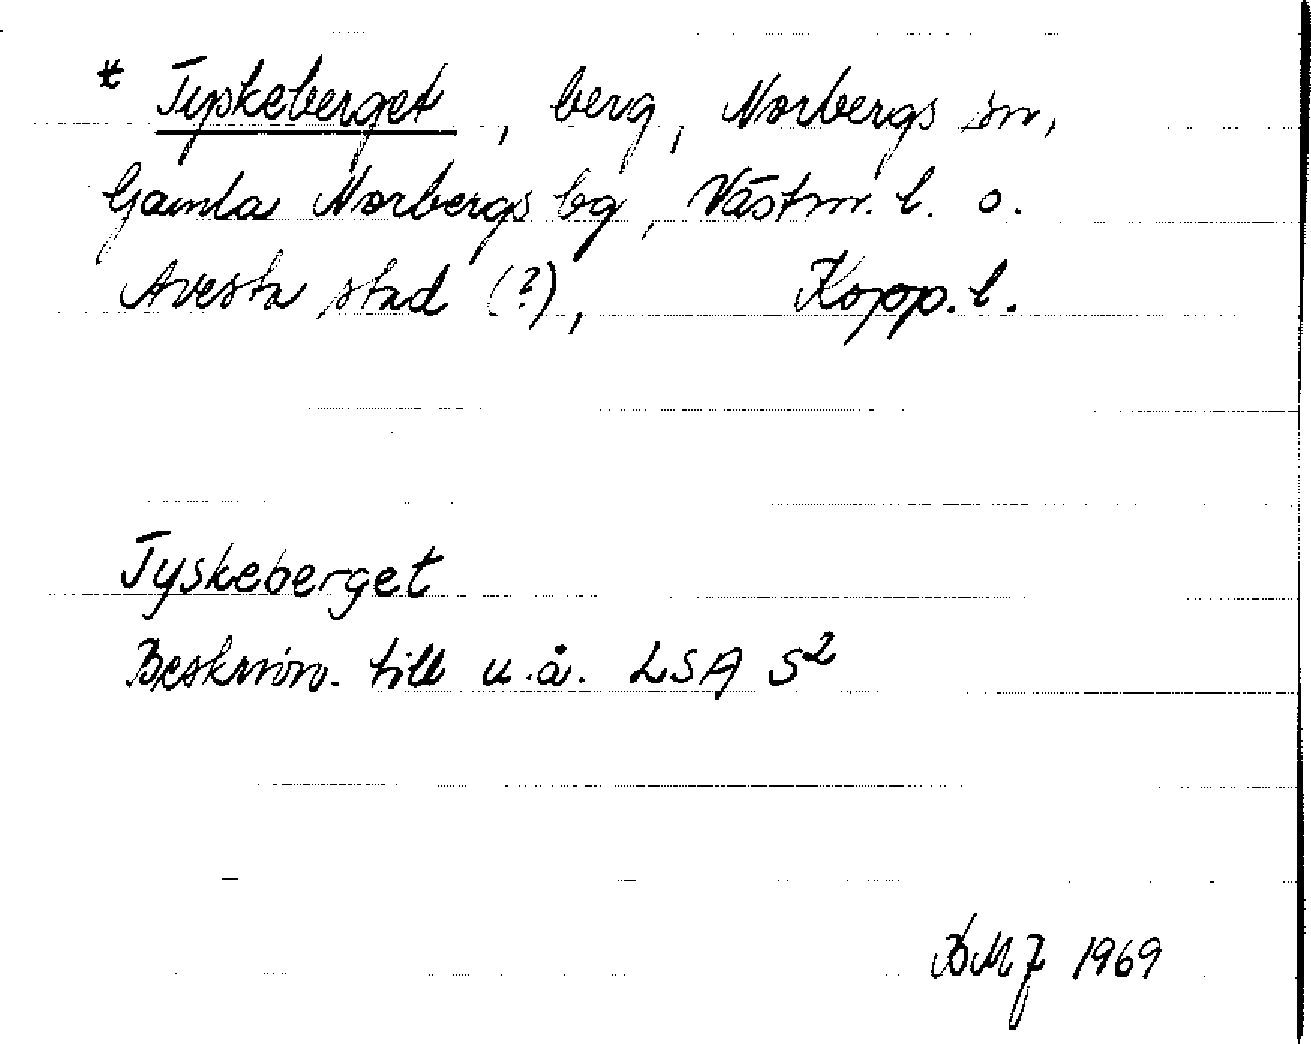 * Tyskeberget, berg, Norbergs sn,
Gamla Norbergs bg, Västm. l. o.
Avesta stad (?), Kopp. l.
Tyskeberget
Beskrivn. till u.å. LSA S²
1969